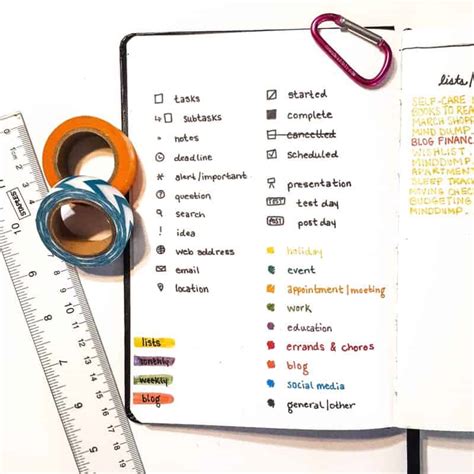 tasks
subtasks
notes
deadline
alert/important
question
search
idea
web address
email
location
lists
monthly
weekly
blog
started
complete
cancelled
scheduled
presentation
TEST test day
POST post day
holiday
event
appointment/meeting
work
education
errands & chores
blog
social media
general/other
lists/
SELF-CARE
BOOKS TO REA
MARCH SHOPP
MIND DUMP.
BLOG FINANC
WISHLIST
MINDDUMP
APARTMENT
SLEEP TRACK
MOVING
BUDGETING
MINDDUMP.
STAPLES
10
9
8
7